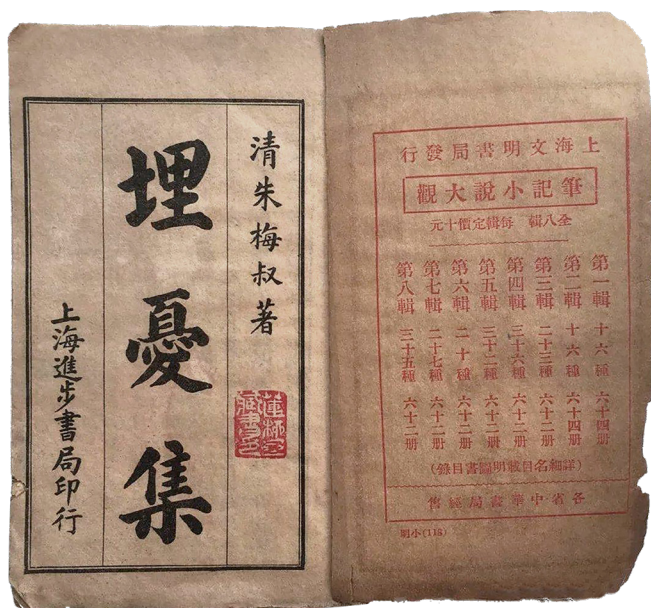 清朱梅叔著
埋憂集
上海進步書局印行
上海文明書局發行
筆記小說大觀
全八輯 每輯定價十元
第一輯 十六種 六十四册
第二輯 十六種 六十四册
第三輯 二十三種 六十二册
第四輯 三十六種 六十二册
第五輯 三十二種 六十二册
第六輯 二十種 六十二册
第七輯 二十七種 六十二册
第八輯 三十五種 六十二册
(詳細名目載明圖書目錄)
各省中華書局經售
明小(116)